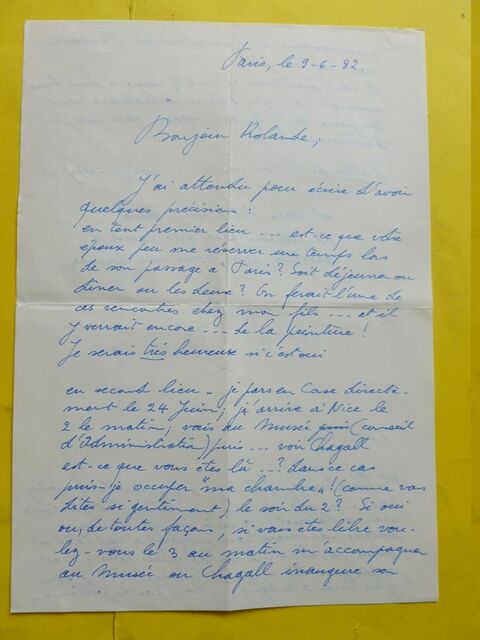 Paris, le 9-6-82.
Bonjour Rolande,
J'ai attendu pour écrire d'avoir
quelques précisions :
en tout premier lieu ... est-ce que votre
époux peu me réserver une temps lors
de son passage à Paris ? Soit déjeuner ou
dîner ou les deux ? On ferait l'une de
ces rencontres chez mon fils ... et il
y verrait encore ... de la peinture !
Je serais très heureuse si c'est oui
en second lieu - je pars en Corse directe-
ment le 24 Juin, j'arrive à Nice le
2 le matin, vais au Musée puis (conseil
d'Administration) puis ... voir Chagall
est-ce que vous êtes là ...? Dans ce cas
puis-je occuper "ma chambre" ! (comme vous
dites si gentiment) le soir du 2 ? Si oui
ou, de toutes façons, si vous êtes libre vou-
lez-vous le 3 au matin m'accompagner
au Musée où Chagall inaugure son